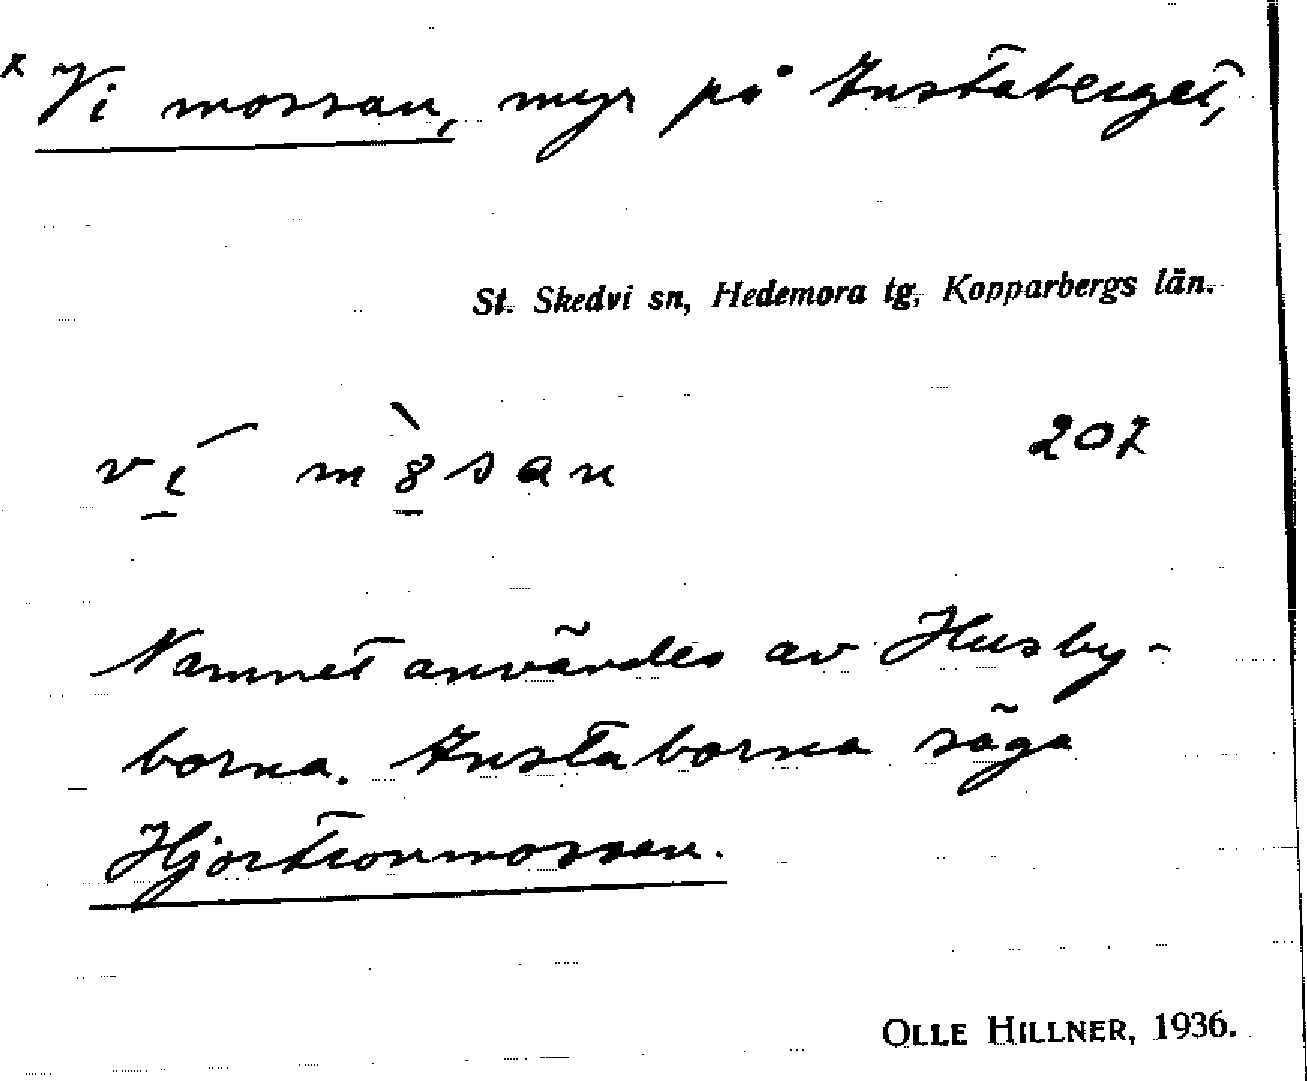 x Vi mossan, myr på Knstaberget,
St. Skedvi sn, Hedemora tg, Kopparbergs län.
vı́ mò̱san 207
Namnet användes av Husby-
borna. Knstaborna säga
Hjortronmossan.
OLLE HILLNER, 1936.